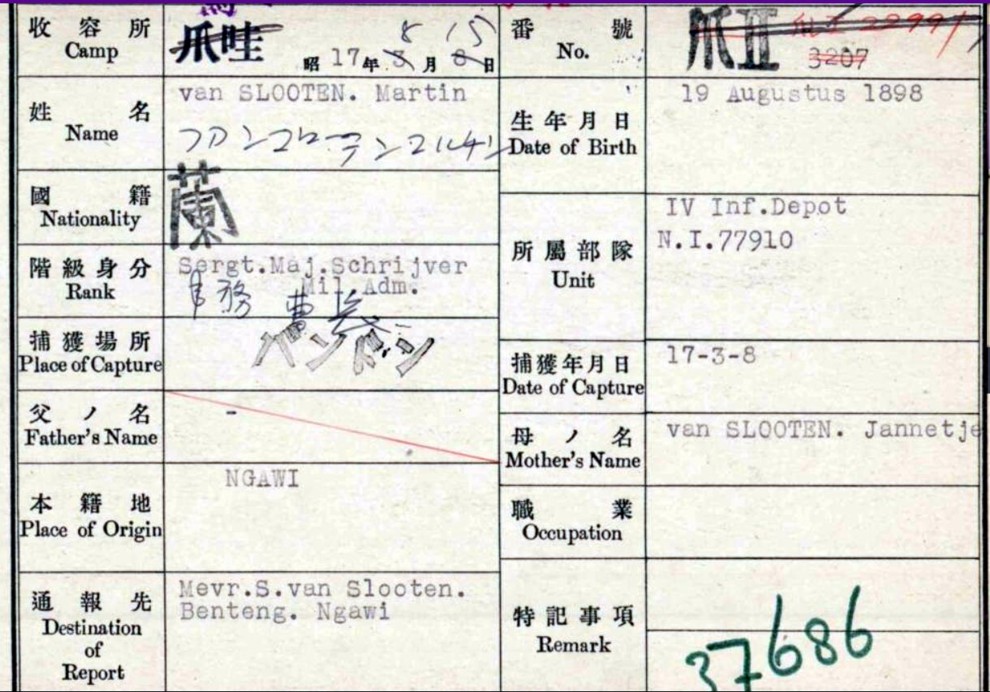 收容所
Camp
爪哇
昭17年 8月 15日
番號
No.
爪 II
3207
姓名
Name
van SLOOTEN. Martin
生年月日
Date of Birth
19 Augustus 1898
國籍
Nationality
蘭
所屬部隊
Unit
IV Inf.Depot
N.I.77910
階級身分
Rank
Sergt.Maj.Schrijver
Mil.Adm.
事務 曹長
捕獲場所
Place of Capture
バンドン
捕獲年月日
Date of Capture
17-3-8
父ノ名
Father's Name
-
母ノ名
Mother's Name
van SLOOTEN. Jannetje
本籍地
Place of Origin
NGAWI
職業
Occupation
通報先
Destination
of
Report
Mevr.S.van Slooten.
Benteng. Ngawi
特記事項
Remark
37686